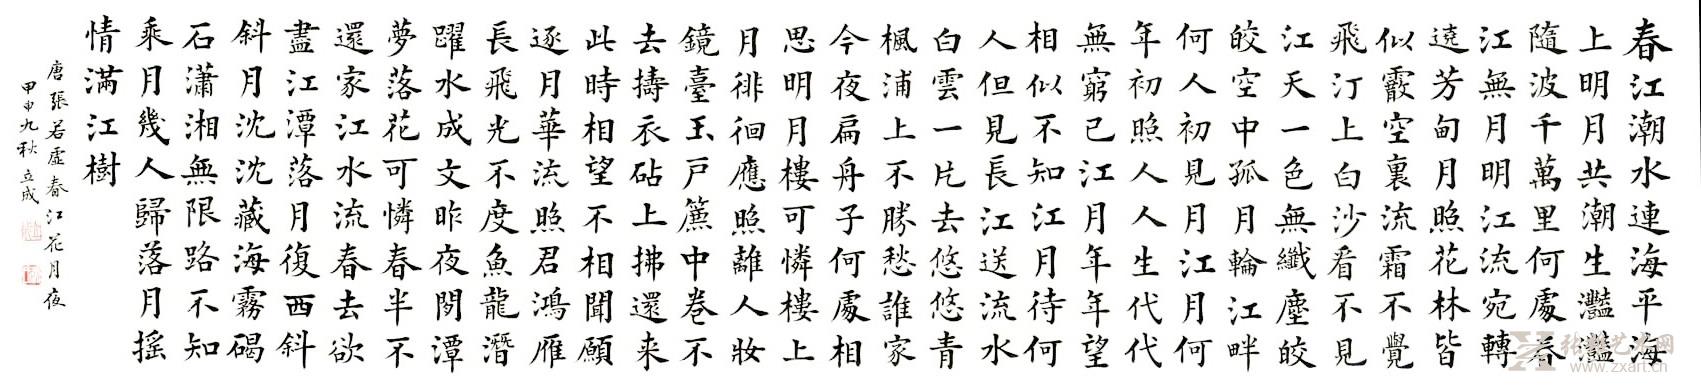 春江潮水連海平海
上明月共潮生灩灩
隨波千萬里何處春
江無月明江流宛轉
遶芳甸月照花林皆
似霰空裏流霜不覺
飛汀上白沙看不見
江天一色無纖塵皎
皎空中孤月輪江畔
何人初見月江月何
年初照人人生代代
無窮已江月年年望
相似不知江月待何
人但見長江送流水
白雲一片去悠悠青
楓浦上不勝愁誰家
今夜扁舟子何處相
思明月樓可憐樓上
月徘徊應照離人妝
鏡臺玉戶簾中卷不
去擣衣砧上拂還來
此時相望不相聞願
逐月華流照君鴻雁
長飛光不度魚龍潛
躍水成文昨夜閒潭
夢落花可憐春半不
還家江水流春去欲
盡江潭落月復西斜
斜月沈沈藏海霧碣
石瀟湘無限路不知
乘月幾人歸落月搖
情滿江樹
唐張若虛春江花月夜
甲申九秋立成
www.zxart.cn